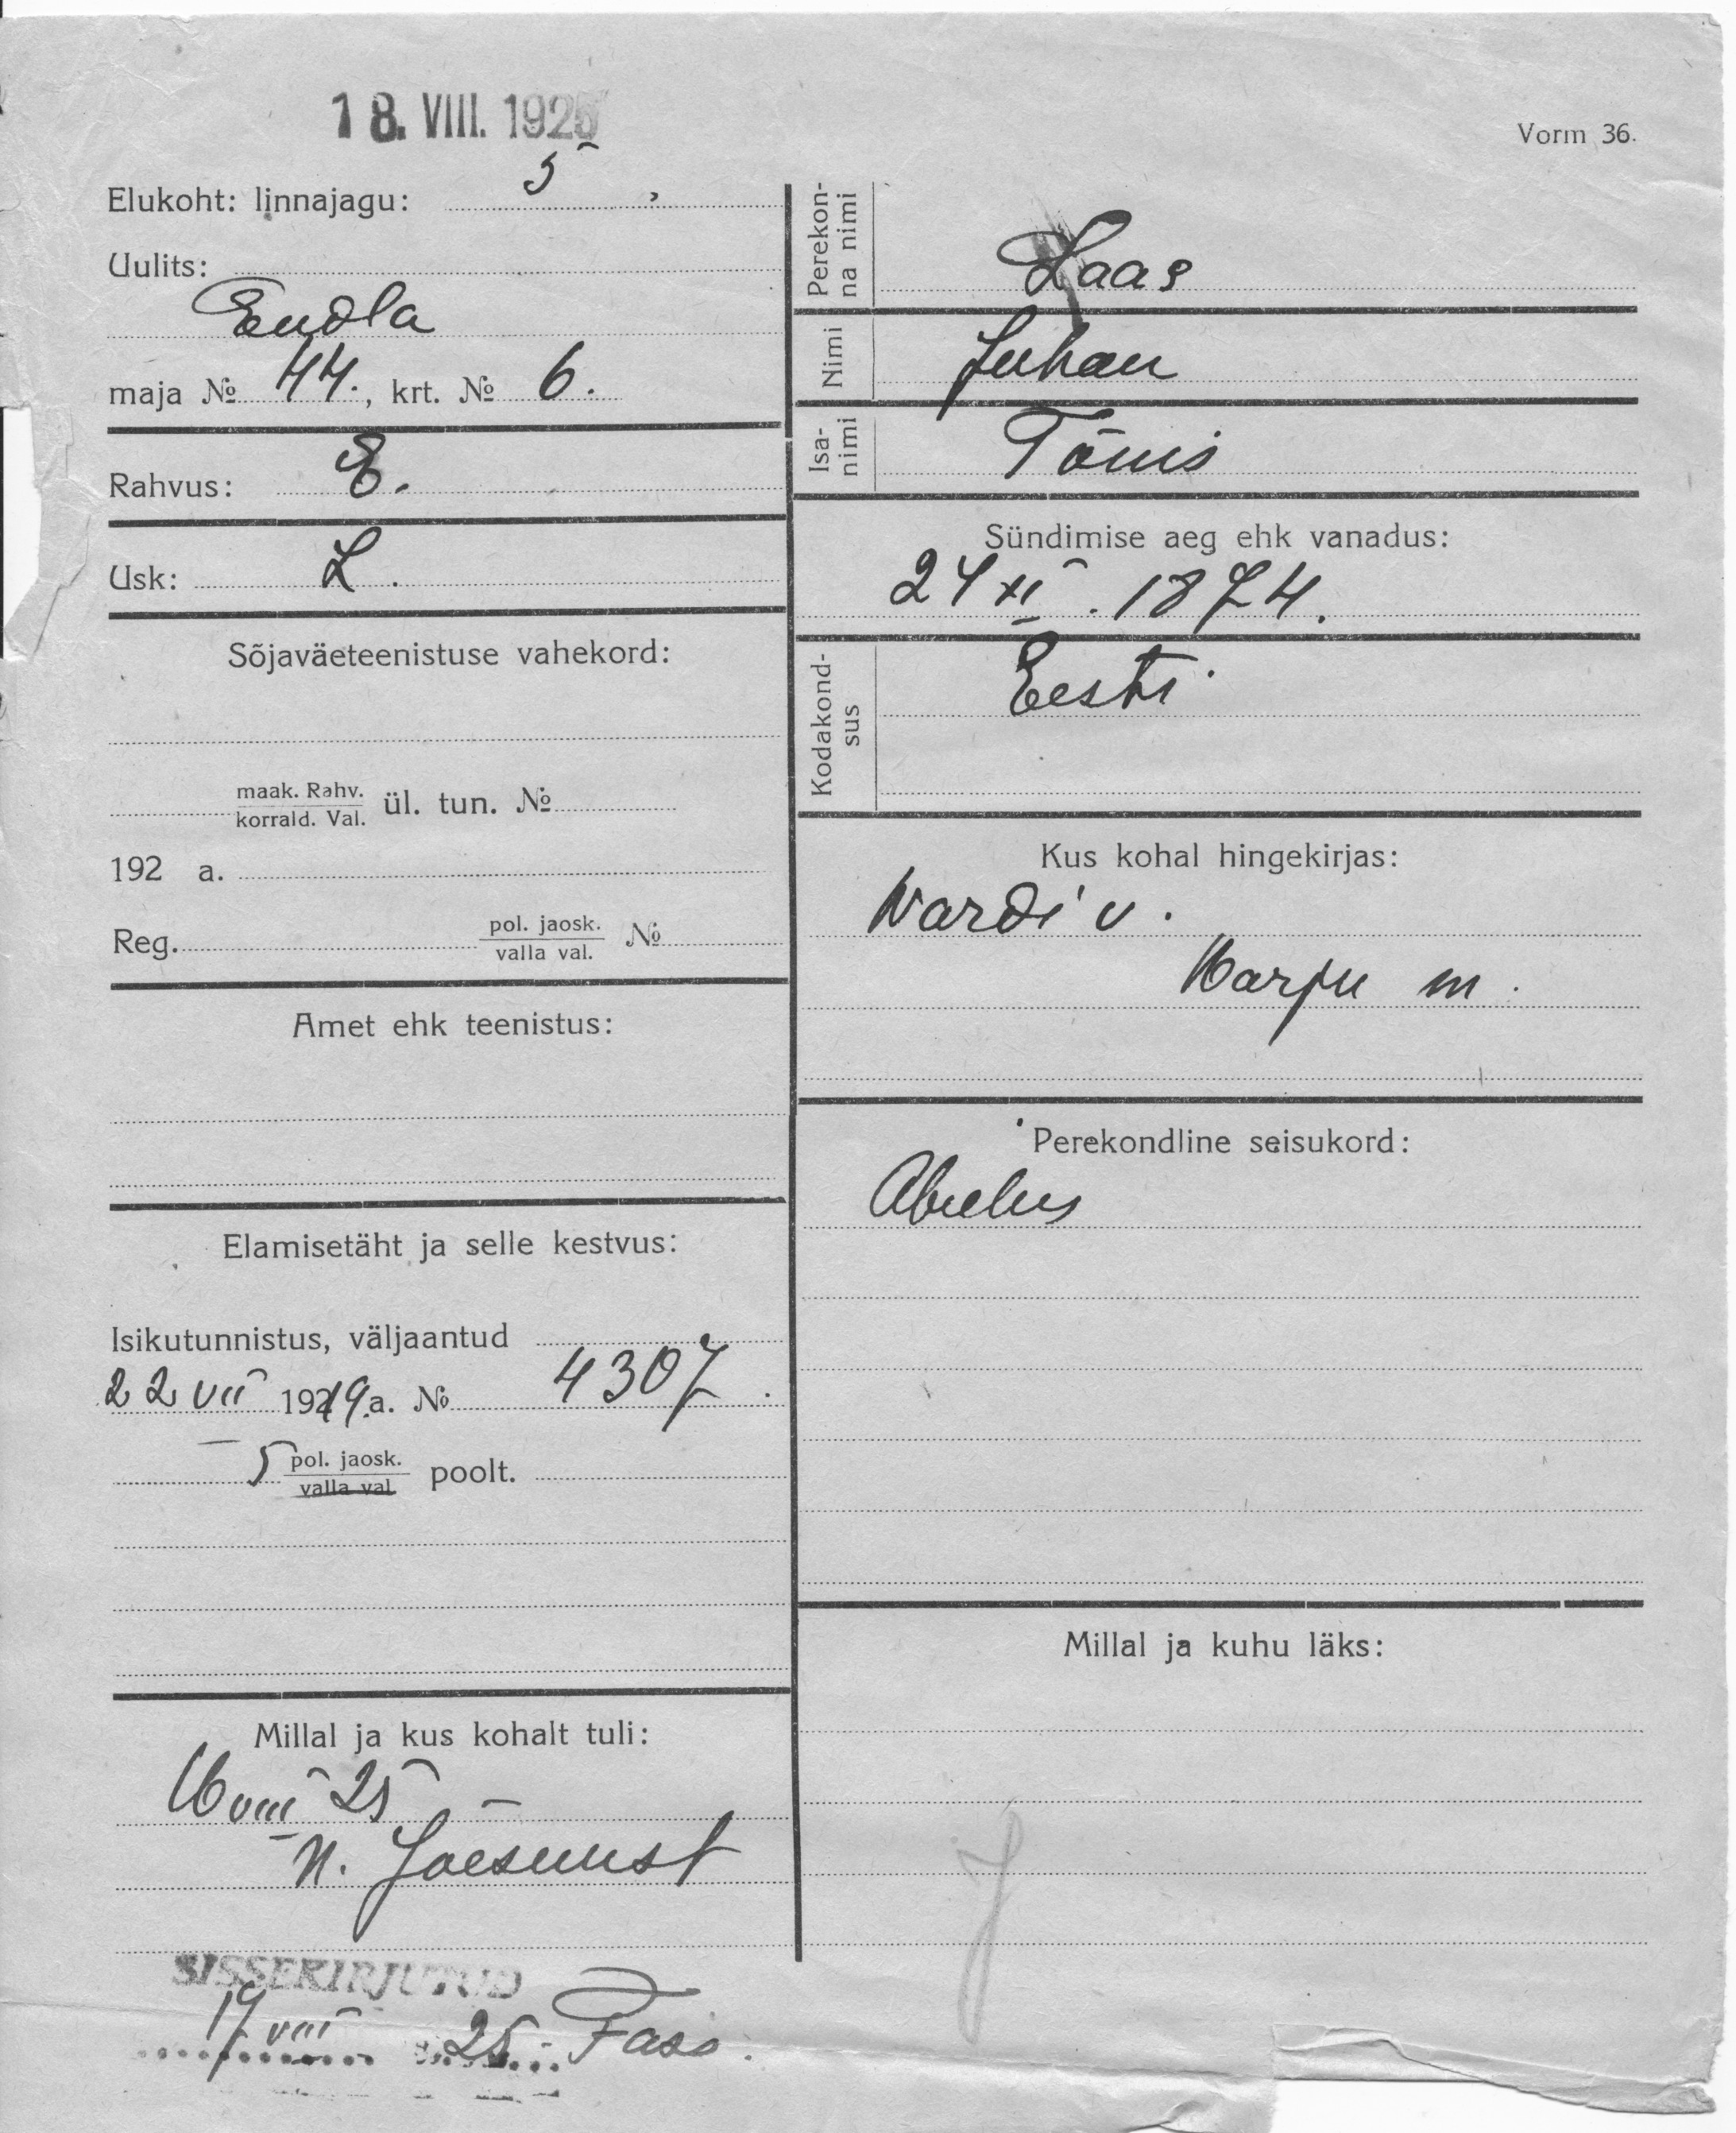 18. VIII. 1925
Vorm 36.
Elukoht: linnajagu: 5
Uulits:
Endla
maja № 44., krt. № 6.
Rahvus: E.
Usk: L.
Sõjaväeteenistuse vahekord:
maak. Rahv.
korrald. Val. ül. tun. №
192 a.
Reg. pol. jaosk.
valla val. №
Amet ehk teenistus:
Elamisetäht ja selle kestvus:
Isikutunnistus, väljaantud
22 VII 1919.a. № 4307.
5 pol. jaosk.
valla val. poolt.
Millal ja kus kohalt tuli:
16 VIII 25
N. Jõesuust
SISSEKIRJUTUD
17 VIII 25
Perekon-
na nimi
Laas
Nimi
Juhan
Isa-
nimi
Tõnis
Sündimise aeg ehk vanadus:
24 XI. 1874.
Kodakond-
sus
Eesti
Kus kohal hingekirjas:
Wardi v.
Harju m.
Perekondline seisukord:
Abielus
Millal ja kuhu läks: